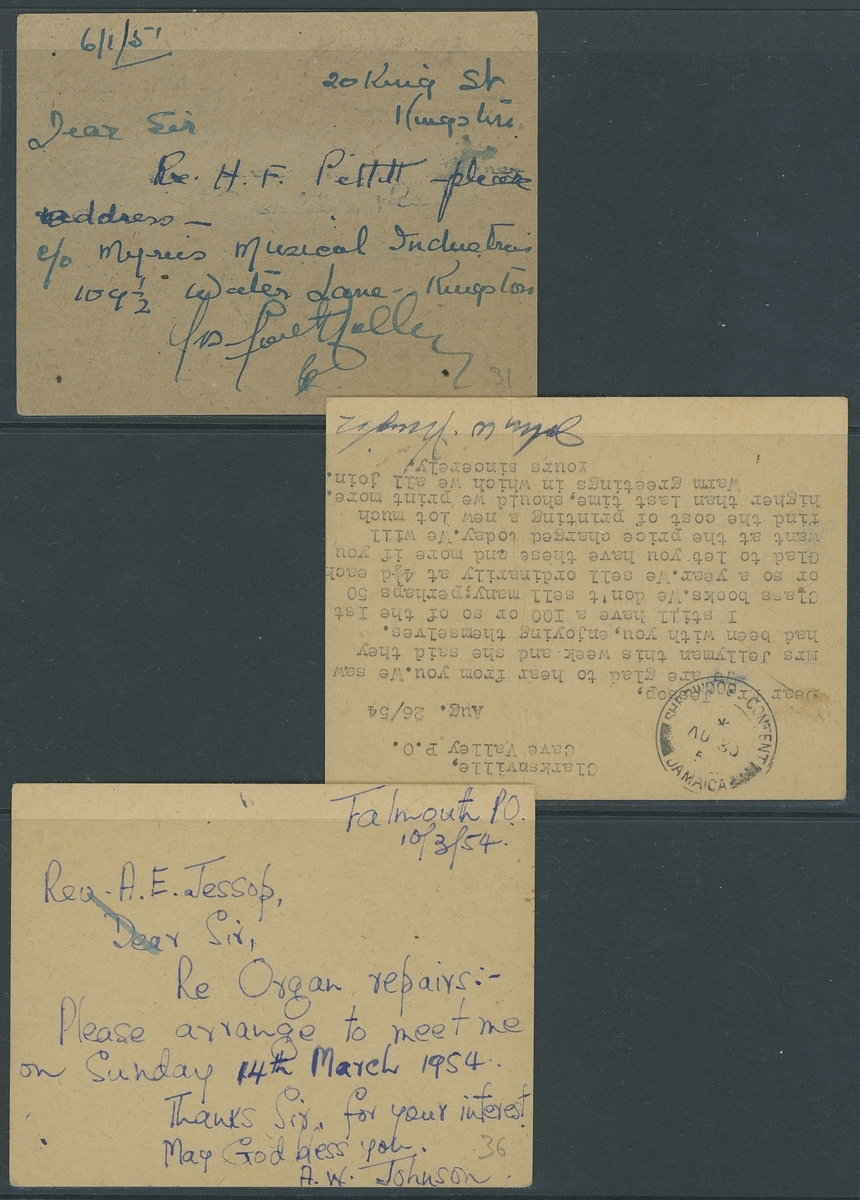 6/1/51
20 King St
Kingston.
Dear Sir
Re. H. F. Pettitt please
address —
c/o Myrie's Musical Industries
109½ Water Lane - Kingston
31
Clarksville,
Cave Valley P.O.
Aug. 26/54
Dear Mr Jessop,
are glad to hear from you.We saw
Mrs Jellyman this week and she said they
had been with you,enjoying themselves.
I still have a 100 or so of the 1st
Class books.We don't sell many;perhaps 50
or so a year.We sell ordinarily at 4½d each
Glad to let you have these and more if you
want at the price charged today.We will
find the cost of printing a new lot much
higher than last time,should we print more.
Warm greetings in which we all join.
Yours sincerely,
John W.
SHERWOOD CONTENT
AU 30
5
JAMAICA
Falmouth P.O.
10/3/54.
Rev. A.E. Jessop,
Dear Sir,
Re Organ repairs:-
Please arrange to meet me
on Sunday 14th March 1954.
Thanks Sir, for your interest
May God bless you.
A.W. Johnson.
36